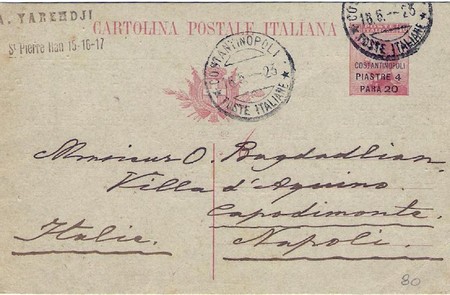 A. YAREHDJI
St Pierre Han 15-16-17
CARTOLINA POSTALE ITALIANA
COSTANTINOPOLI
16.6.-23
POSTE ITALIANE
COSTANTINOPOLI
16.6.-23
POSTE ITALIANE
COSTANTINOPOLI
PIASTRE 4
PARA 20
Monsieur O. Bagdadlian
Villa d'Aquino
Capodimonte
Italie. Napoli.
80